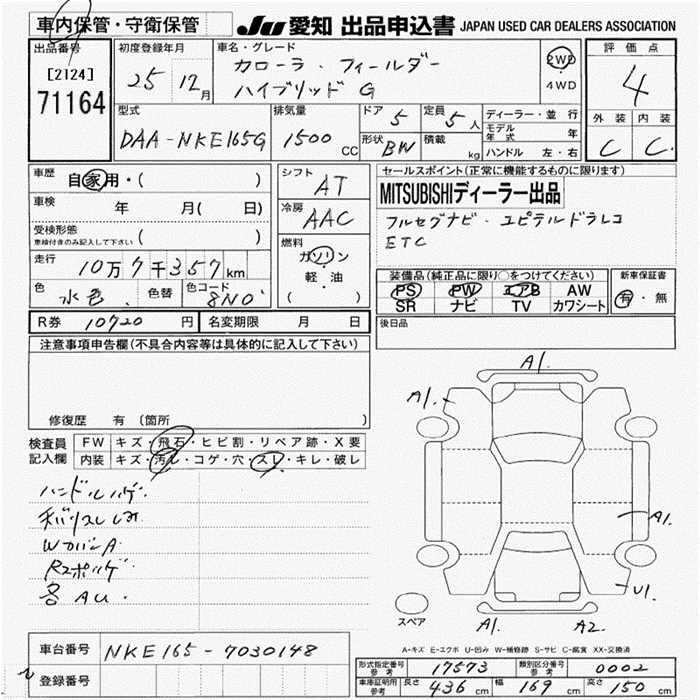 車内保管・守衛保管
JU 愛知 出品申込書 JAPAN USED CAR DEALERS ASSOCIATION
出品番号
[2124]
71164
初度登録年月
25 12月
車名・グレード
カローラ・フィールダー
ハイブリッド G
2WD
4WD
評価点
4
外装 内装
C C
型式
DAA-NKE165G
排気量
1500 CC
ドア 5
定員 5人
形状 BW
積載 kg
ディーラー・並行
モデル年式 年
ハンドル 左・右
車歴
自家用・( )
車検
年 月( 日)
受検形態
車検付きのみ記入して下さい ( )
走行
10万7千357km
色 水色
色替
色コード 8N0
シフト AT
冷房 AAC
燃料
ガソリン
軽・油
( )
セールスポイント(正常に機能するものに限ります)
MITSUBISHIディーラー出品
フルセグナビ・ユピテルドラレコ
ETC
装備品(純正品に限り○をつけてください)
PS PW エアB AW
SR ナビ TV カワシート
新車保証書
有・無
後日品
R券 10720 円
名変期限 月 日
注意事項申告欄(不具合内容等は具体的に記入して下さい)
修復歴 有 (箇所 )
検査員
記入欄
FW キズ・飛石・ヒビ割・リペア跡・X要
内装 キズ・汚れ・コゲ・穴・スレ・キレ・破レ
ハンドルハゲ
WカバーA
各AU.
A1.
A1.
A1.
U1.
A1.
A2.
スペア
A-キズ E-エクボ U-凹み W-補修跡 S-サビ C-腐食 XX-交換済
車台番号 NKE165-7030148
登録番号
形式指定番号 参考 17573
類別区分番号 参考 0002
車庫証明用 参考 長さ 436 cm 幅 169 cm 高さ 150 cm